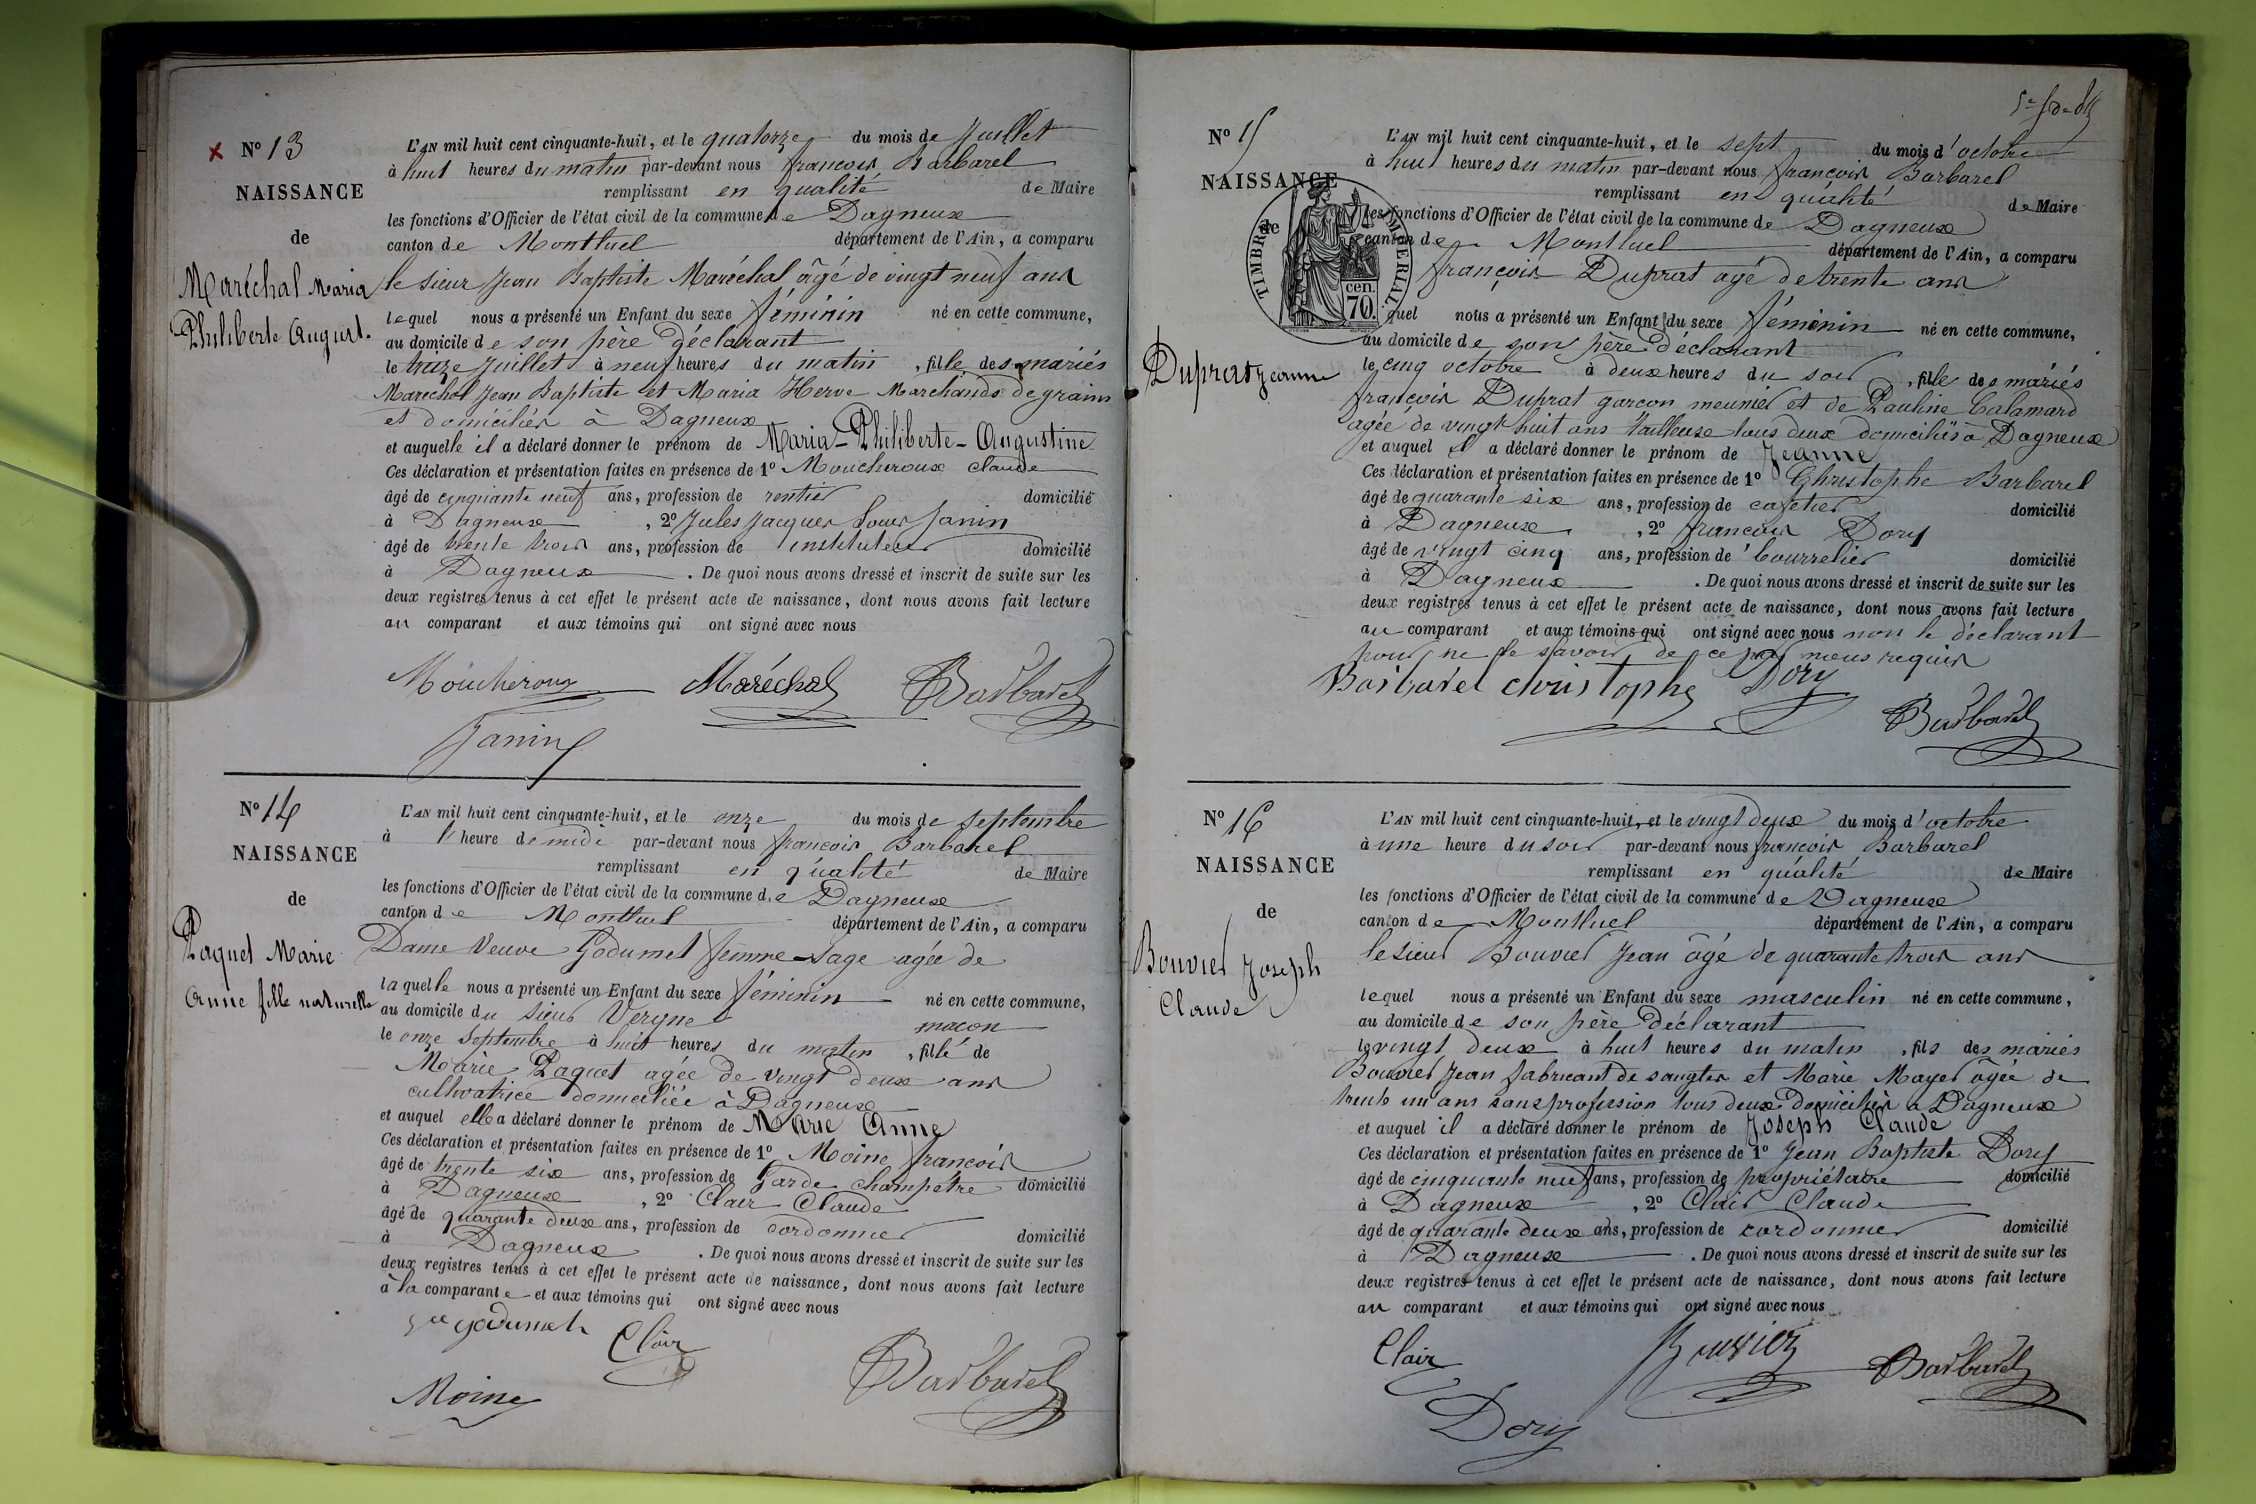 N° 13
NAISSANCE
de
Maréchal Maria
Philiberte August.
L'AN mil huit cent cinquante-huit, et le quatorze du mois de Juillet
à huit heures du matin par-devant nous françois Barbarel
remplissant en qualité de Maire
les fonctions d'Officier de l'état civil de la commune de Dagneux
canton de Montluel département de l'Ain, a comparu
le sieur Jean Baptiste Maréchal âgé de vingt neuf ans
lequel nous a présenté un Enfant du sexe féminin né en cette commune,
au domicile de son père déclarant
le treize Juillet à neuf heures du matin , fille des mariés
Maréchal Jean Baptiste et Maria Herve Marchands de grains
et domiciliés à Dagneux
et auquelle il a déclaré donner le prénom de Maria-Philiberte-Augustine
Ces déclaration et présentation faites en présence de 1° Moucheroux claude
âgé de cinquante neuf ans, profession de rentier domicilié
à Dagneux , 2° Jules Jacques Louis Janin
âgé de trente trois ans, profession de instituteur domicilié
à Dagneux . De quoi nous avons dressé et inscrit de suite sur les
deux registres tenus à cet effet le présent acte de naissance, dont nous avons fait lecture
au comparant et aux témoins qui ont signé avec nous
Moucheroux Maréchal Barbarel
Janin
N° 14
NAISSANCE
de
Paquet Marie
Anne fille naturelle
L'AN mil huit cent cinquante-huit, et le onze du mois de septembre
à l'heure de midi par-devant nous françois Barbarel
remplissant en qualité de Maire
les fonctions d'Officier de l'état civil de la commune de Dagneux
canton de Montluel département de l'Ain, a comparu
Dame Veuve Godumet femme-sage agée de
laquelle nous a présenté un Enfant du sexe féminin né en cette commune,
au domicile du sieur Vergne macon
le onze septembre à huit heures du matin , fille de
Marie Paquet agée de vingt deux ans
cultivatrice domiciliée à Dagneux
et auquel elle a déclaré donner le prénom de Marie Anne
Ces déclaration et présentation faites en présence de 1° Moine françois
âgé de trente six ans, profession de Garde champêtre domicilié
à Dagneux , 2° Clair Claude
âgé de quarante deux ans, profession de cordonnier domicilié
à Dagneux . De quoi nous avons dressé et inscrit de suite sur les
deux registres tenus à cet effet le présent acte de naissance, dont nous avons fait lecture
à la comparante et aux témoins qui ont signé avec nous
godumet Clair Barbarel
Moine
N° 15
NAISSANCE
de
TIMBRE IMPÉRIAL
70 cen.
Duprat Jeanne
L'AN mil huit cent cinquante-huit, et le sept du mois d'octobre
à huit heures du matin par-devant nous françois Barbarel
remplissant en qualité de Maire
les fonctions d'Officier de l'état civil de la commune de Dagneux
canton de Montluel département de l'Ain, a comparu
françois Duprat agé de trente ans
quel nous a présenté un Enfant du sexe féminin né en cette commune,
au domicile de son père déclarant
le cinq octobre à deux heures du soir , fille des mariés
françois Duprat garcon meunier et de Pauline Calamard
agée de vingt huit ans tailleuse tous deux domiciliés à Dagneux
et auquel il a déclaré donner le prénom de Jeanne
Ces déclaration et présentation faites en présence de 1° Christophe Barbarel
âgé de quarante six ans, profession de cafetier domicilié
à Dagneux , 2° françois Dory
âgé de vingt cinq ans, profession de bourrelier domicilié
à Dagneux . De quoi nous avons dressé et inscrit de suite sur les
deux registres tenus à cet effet le présent acte de naissance, dont nous avons fait lecture
au comparant et aux témoins qui ont signé avec nous non le déclarant
pour ne le savoir de ce par nous requis
Barbarel christophe Dory
Barbarel
N° 16
NAISSANCE
de
Bouvier Joseph
Claude
L'AN mil huit cent cinquante-huit, et le vingt deux du mois d'octobre
à une heure du soir par-devant nous françois Barbarel
remplissant en qualité de Maire
les fonctions d'Officier de l'état civil de la commune de Dagneux
canton de Montluel département de l'Ain, a comparu
le sieur Bouvier Jean âgé de quarante trois ans
lequel nous a présenté un Enfant du sexe masculin né en cette commune,
au domicile de son père déclarant
le vingt deux à huit heures du matin , fils des mariés
Bouvier Jean fabricant de sangles et Marie Mayer âgée de
trente un ans sans profession tous deux domiciliés à Dagneux
et auquel il a déclaré donner le prénom de Joseph Claude
Ces déclaration et présentation faites en présence de 1° Jean Baptiste Dory
âgé de cinquante neuf ans, profession de propriétaire domicilié
à Dagneux , 2° Clair Claude
âgé de quarante deux ans, profession de cordonnier domicilié
à Dagneux . De quoi nous avons dressé et inscrit de suite sur les
deux registres tenus à cet effet le présent acte de naissance, dont nous avons fait lecture
au comparant et aux témoins qui ont signé avec nous
Clair Bouvier Barbarel
Dory